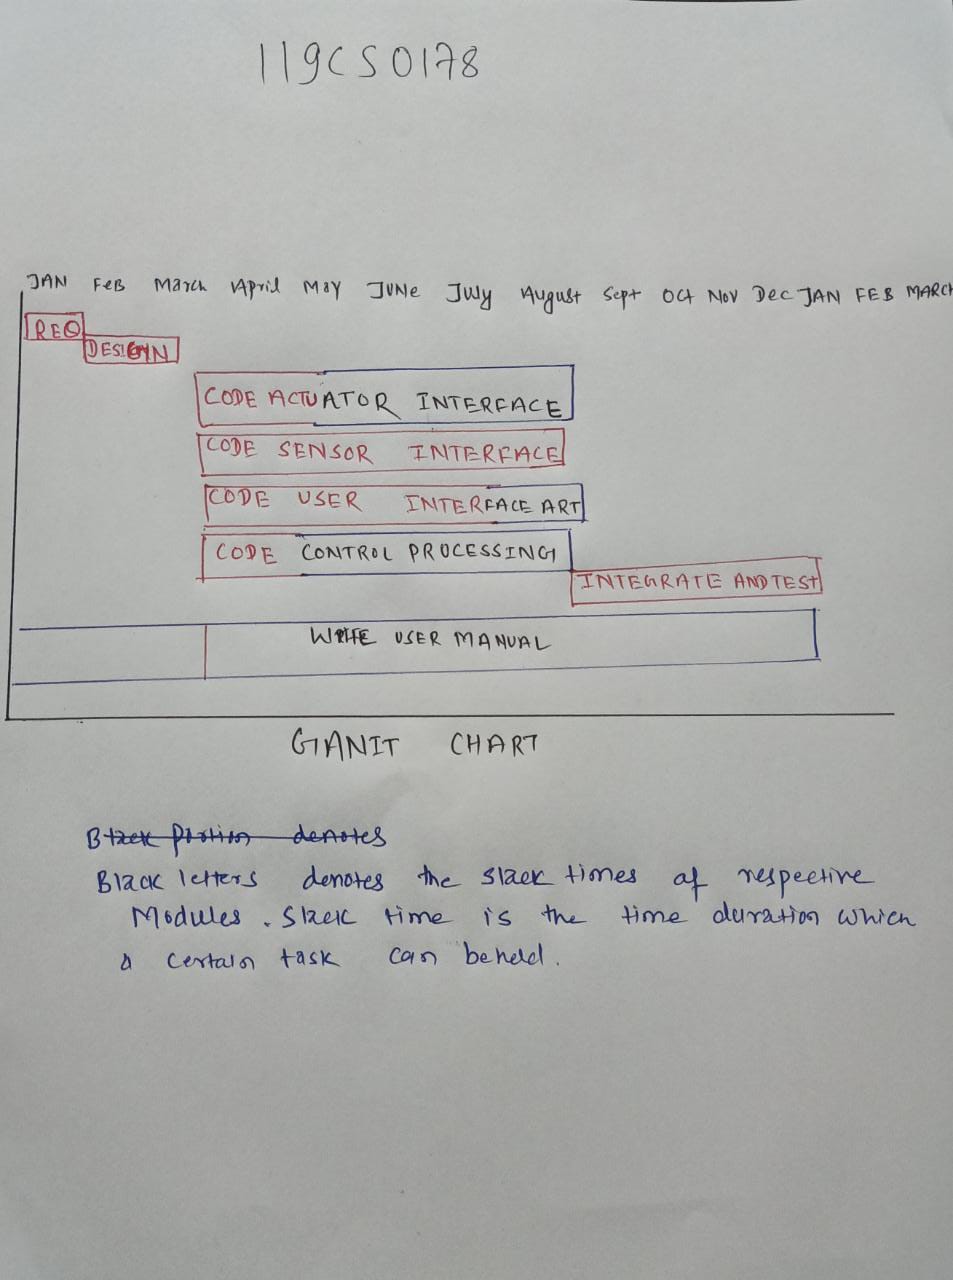 119CS0178
JAN FEB March April May JUNe July August Sept Oct Nov Dec JAN FEB MARCH
REQ
DESIGN
CODE ACTUATOR INTERFACE
CODE SENSOR INTERFACE
CODE USER INTERFACE ART
CODE CONTROL PROCESSING
INTEGRATE AND TEST
WRITE USER MANUAL
GANTT CHART
Black portion denotes
Black letters denotes the slack times of respective
Modules. Slack time is the time duration which
a certain task can be held.